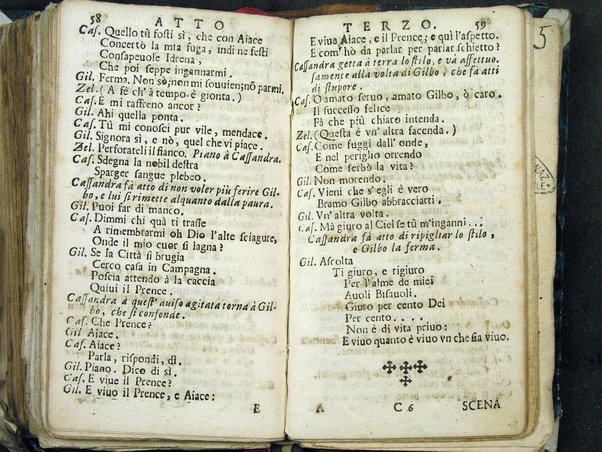 58 ATTO
Cas. Quello tù fosti sì, che con Aiace
Concertò la mia fuga, indi ne festi
Consapeuole Idrena,
Che poi seppe ingannarmi.
Gil. Ferma. Non sò; non mi souuien; nõ parmi.
Zel. (A fè ch'à tempo è gionta.)
Cas. E mi raffreno ancor?
Gil. Ahi quella ponta.
Cas. Tù mi conosci pur vile, mendace.
Gil. Signora sì, e nò, quel che vi piace.
Zel. Perforateli il fianco. Piano à Cassandra.
Cas. Sdegna la nobil destra
Sparger sangue plebeo.
Cassandra fà atto di non voler più ferire Gil-
bo, e lui si rimette alquanto dalla paura.
Gil. Puoi far di manco.
Cas. Dimmi chi quà ti trasse
A rimembrarmi oh Dio l'alte sciagure,
Onde il mio cuor si lagna?
Gil. Se la Città si brugia
Cerco casa in Campagna.
Poscia attendo à la caccia
Quiui il Prence.
Cassandra à quest' auiso agitata torna à Gil-
bo, che si confonde.
Cas. Che Prence?
Gil. Aiace.
Cas. Aiace?
Parla, rispondi, dì.
Gil. Piano. Dico di sì.
Cas. E viue il Prence?
Gil. E viuo il Prence, e Aiace:
E
TERZO. 59
E viuo Aiace, e il Prence; e quì l'aspetto.
E com'hò da parlar per parlar schietto?
Cassandra getta à terra lo stilo, e và affettuo-
samente alla volta di Gilbo, che fà atti
di stupore.
Cas. O amato seruo, amato Gilbo, ò caro.
Il successo felice
Fà che più chiaro intenda.
Zel. (Questa è vn' altra facenda.)
Cas. Come fuggì dall' onde,
E nel periglio orrendo
Come serbò la vita?
Gil. Non morendo.
Cas. Vieni che s'egli è vero
Bramo Gilbo abbracciarti.
Gil. Vn' altra volta.
Cas. Mà giuro al Ciel se tù m'inganni...
Cassandra fà atto di ripigliar lo stilo,
e Gilbo la ferma.
Gil. Ascolta
Ti giuro, e rigiuro
Per l'alme de miei
Auoli Bisauoli.
Giuro per cento Dei
Per cento....
Non è di vita priuo:
E viuo quanto è viuo vn che sia viuo.
A C 6 SCENA
5